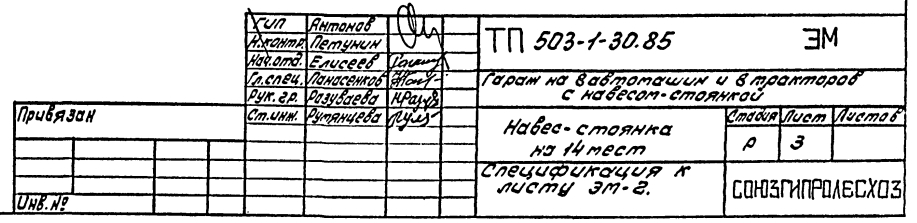 ГИП Антонов
Н.контр. Петунин
Нач.отд. Елисеев
Гл.спец. Панасенков
Рук.гр. Разуваева
Ст.инж. Румянцева
ТП 503-1-30.85 ЭМ
Гараж на 8 автомашин и 8 тракторов
с навесом-стоянкой
Привязан
Инв.№
Навес-стоянка
на 14 мест
Стадия Лист Листов
Р 3
Спецификация к
листу ЭМ-2.
СОЮЗГИПРОЛЕСХОЗ